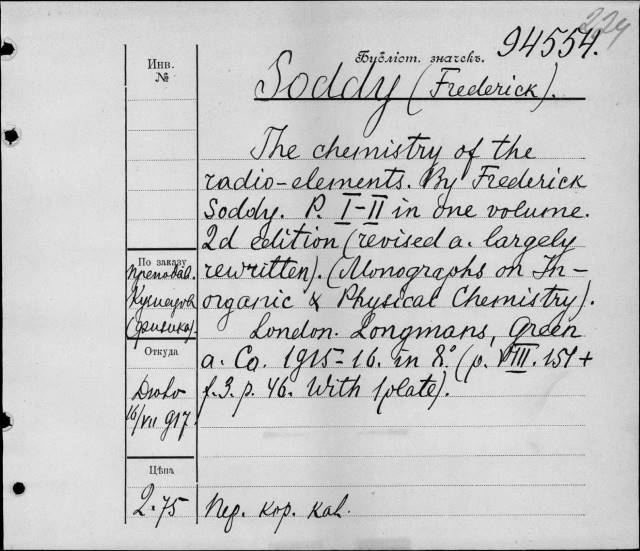 224
94554.
Инв.
№
Бубліст. значекъ.
Soddy (Frederick).
The chemistry of the
radio-elements. By Frederick
Soddy. P. I-II in one volume.
2d edition (revised a. largely
rewritten). (Monographs on In-
organic & Physical Chemistry).
London. Longmans, Green
a. Co. 1915-16. in 8.° (p. VIII. 151 +
f. 3. p. 46. With 1 plate).
По заказу
препода.
Кузнецова
(физика).
Откуда
16/VII 917.
Цѣна
2.75
Пер. кор. кал.